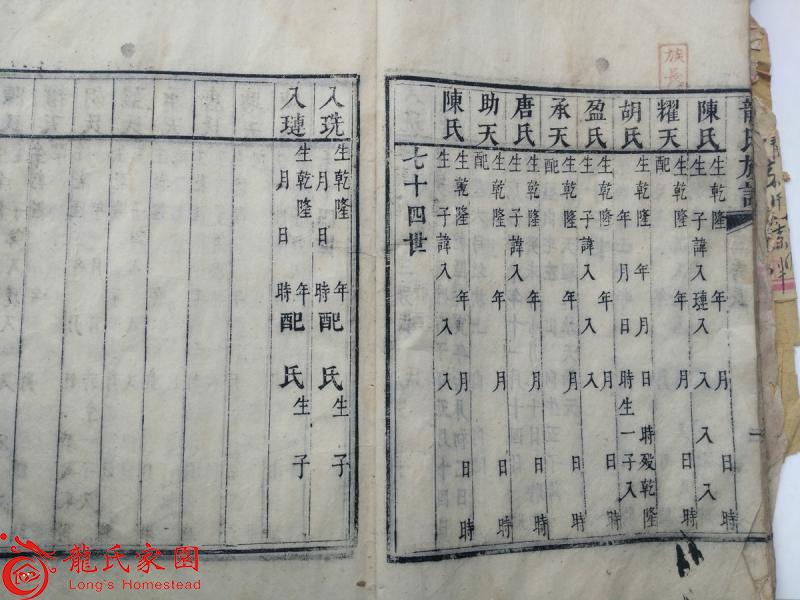 龍氏族譜
陳氏 生乾隆 年 月 日
生 子諱入璉入 入 入
耀天 生乾隆 年 月 日 時
配
胡氏 生乾隆 年 月 日 時殁乾隆
年 月 日 時生一子入
盈氏 生乾隆 年 月 日 時
生 子諱入 入
承天 生乾隆 年 月 日 時
配
唐氏 生乾隆 年 月 日 時
生 子諱入 入
助天 生乾隆 年 月 日 時
配
陳氏 生乾隆 年 月 日 時
生 子諱入 入
七十四世
入珗 生乾隆 年
月 日 時 配 氏 生 子
入璉 生乾隆 年
月 日 時 配 氏 生 子
龍氏家園
Long's Homestead